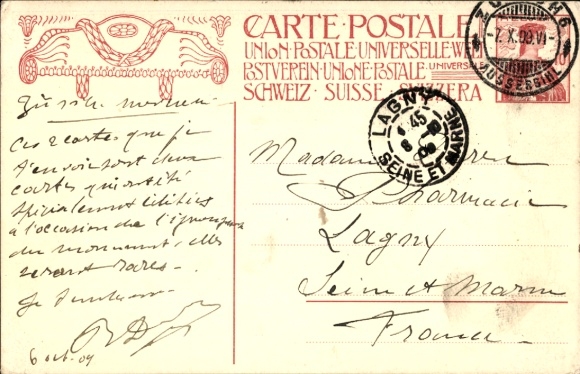 CARTE POSTALE
UNION POSTALE UNIVERSELLE WE
POSTVEREIN UNIONE POSTALE UNIVERSALE
SCHWEIZ SUISSE SVIZZERA
-7.X.09.VI-
AUSSERSIHL
LAGNY
SEINE ET MARNE
Ces cartes que je
t'envoie sont deux
cartes qui ont été
spécialement éditées
à l'occasion de l'
du monument, elles
seront rares -
6 oct. 09
Madame
Pharmacie
Lagny
Seine et Marne
France